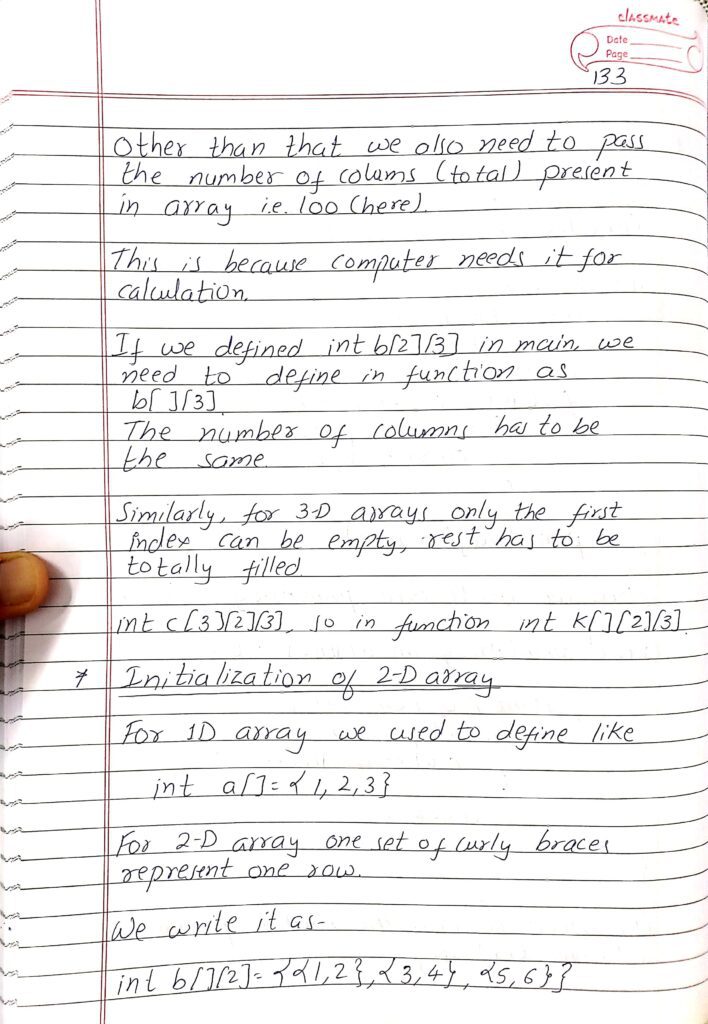 classmate
Date
Page
133
Other than that we also need to pass
the number of colums (total) present
in array i.e. 100 (here).
This is because computer needs it for
calculation.
If we defined int b[2][3] in main, we
need to define in function as
b[ ][3]
The number of columns has to be
the same.
Similarly, for 3-D arrays only the first
index can be empty, rest has to be
totally filled.
int c[3][2][3], so in function int k[][2][3]
* Initialization of 2-D array
For 1D array we used to define like
int a[]= {1, 2, 3}
For 2-D array one set of curly braces
represent one row.
We write it as-
int b[][2]= {{1,2}, {3,4}, {5,6}}